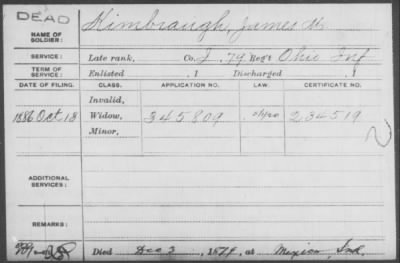 DEAD
NAME OF SOLDIER: Kimbraugh, James
SERVICE: Late rank, Co. I, 79 Reg't Ohio Inf
TERM OF SERVICE: Enlisted , 1 Discharged , 1
DATE OF FILING. CLASS. APPLICATION NO. LAW. CERTIFICATE NO.
Invalid,
1886 Oct. 18 Widow, 345809 234519
Minor,
ADDITIONAL SERVICES:
REMARKS:
Died Dec 3, 1874, at Mexico, Ind.